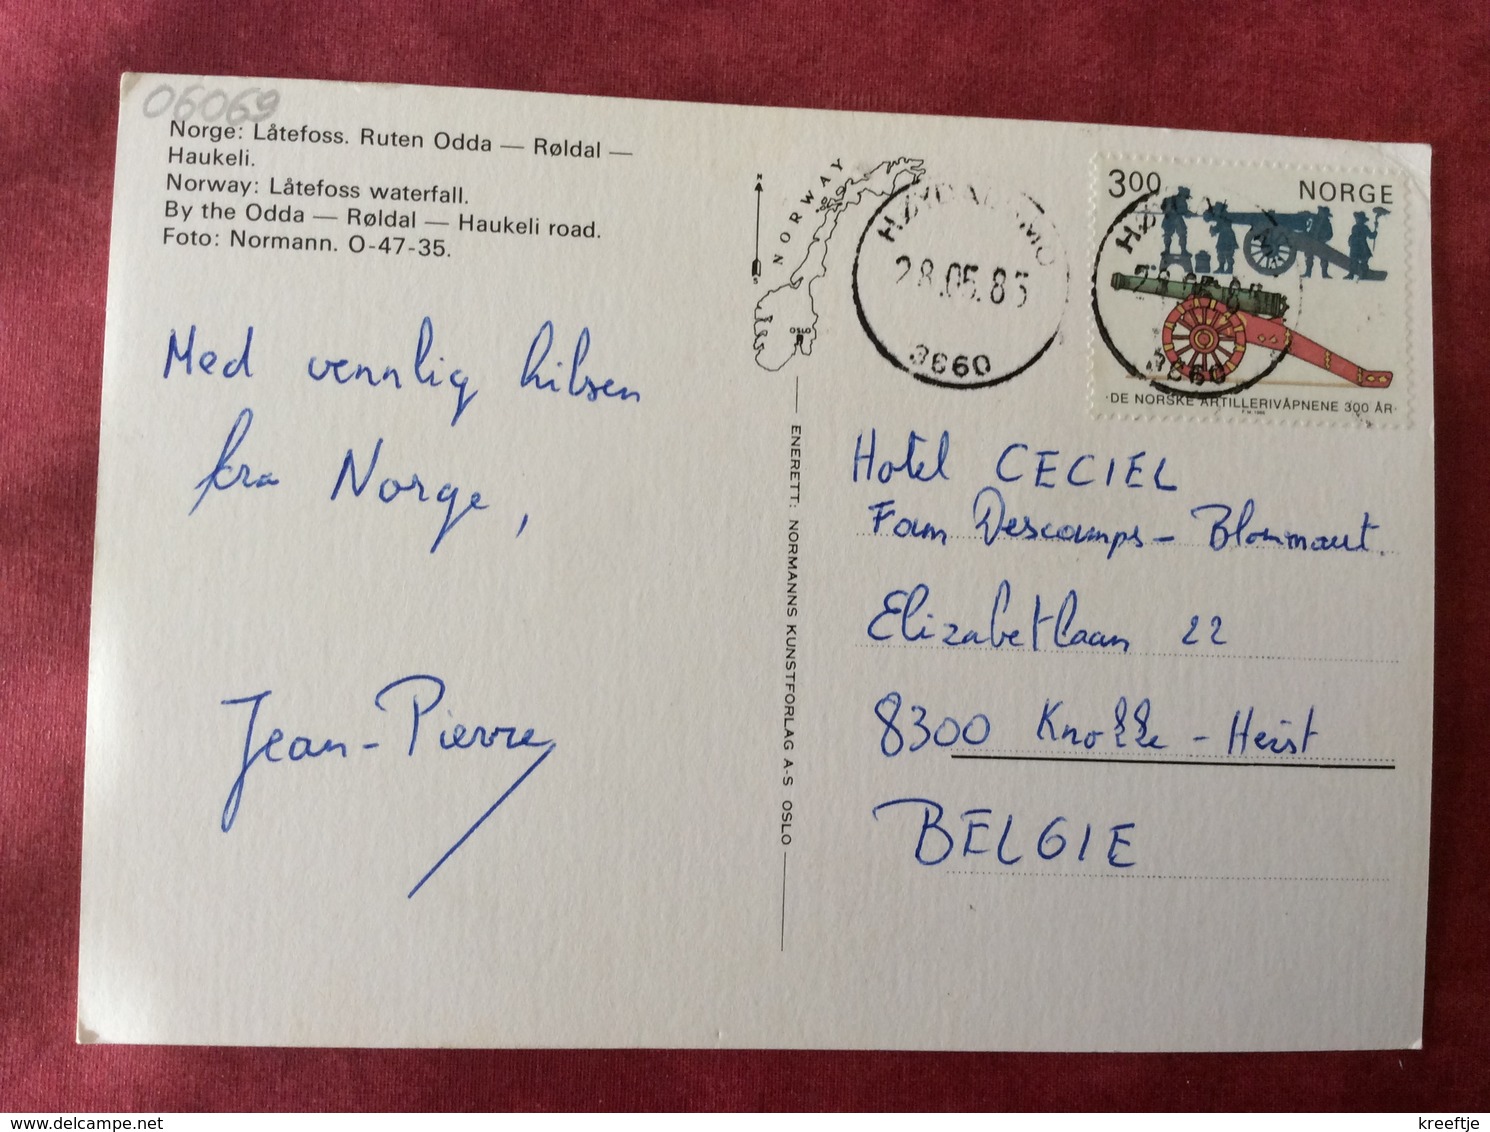 06069
Norge: Låtefoss. Ruten Odda — Røldal —
Haukeli.
Norway: Låtefoss waterfall.
By the Odda — Røldal — Haukeli road.
Foto: Normann. O-47-35.
Med vennlig hilsen
fra Norge,
Jean-Pierre
NORWAY
OSLO
ENERETT: NORMANNS KUNSTFORLAG A-S OSLO
28.05.85
3660
300 NORGE
3660
·DE NORSKE ARTILLERIVÅPNENE 300 ÅR·
Hotel CECIEL
Fam Descamps - Blommaut.
Elizabetlaan 22
8300 Knokke - Heist
BELGIE
kreeftje